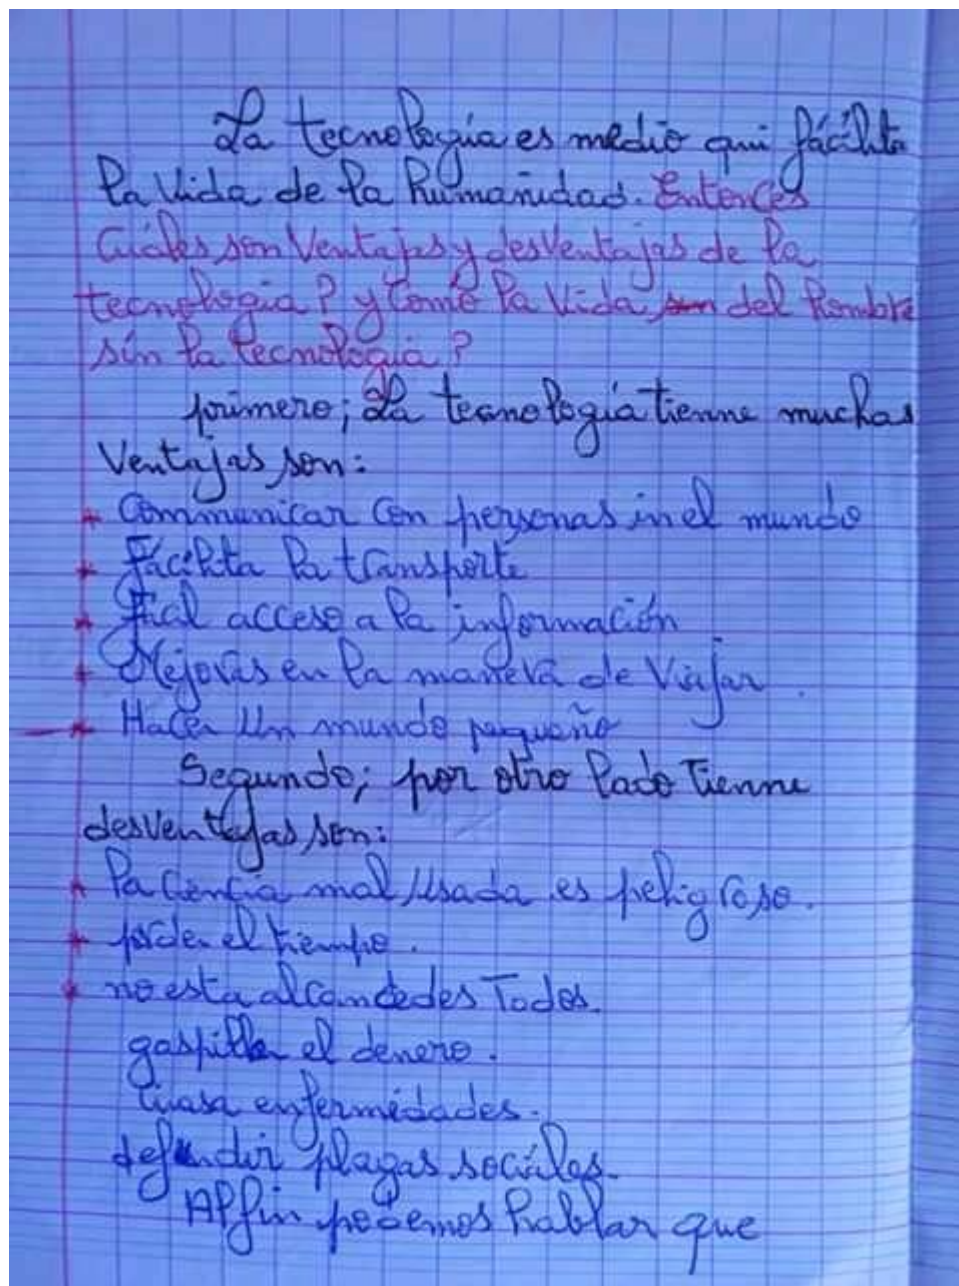 La tecnología es medio qui fácilita
la vida de la humanidad. Entonces
Cuáles son Ventajas y desventajas de la
tecnologia? y como la vida son del hombre
sín la tecnologia?
primero; La tecnología tienne muchas
Ventajas son:
* Communicar con personas in el mundo
* Facilita la transporte
* Fácil acceso a la información
* Mejoras en la manera de Viajar.
* Hacer Un mundo pequeño
Segundo; por otro lado Tienne
desventajas son:
* la ciencia mal Usada es peligroso.
* perder el tiempo.
* no esta alcandedes Todos.
gaspilla el denero.
Cuasa enfermédades.
defundir plagas sociales.
Al fin podemos hablar que